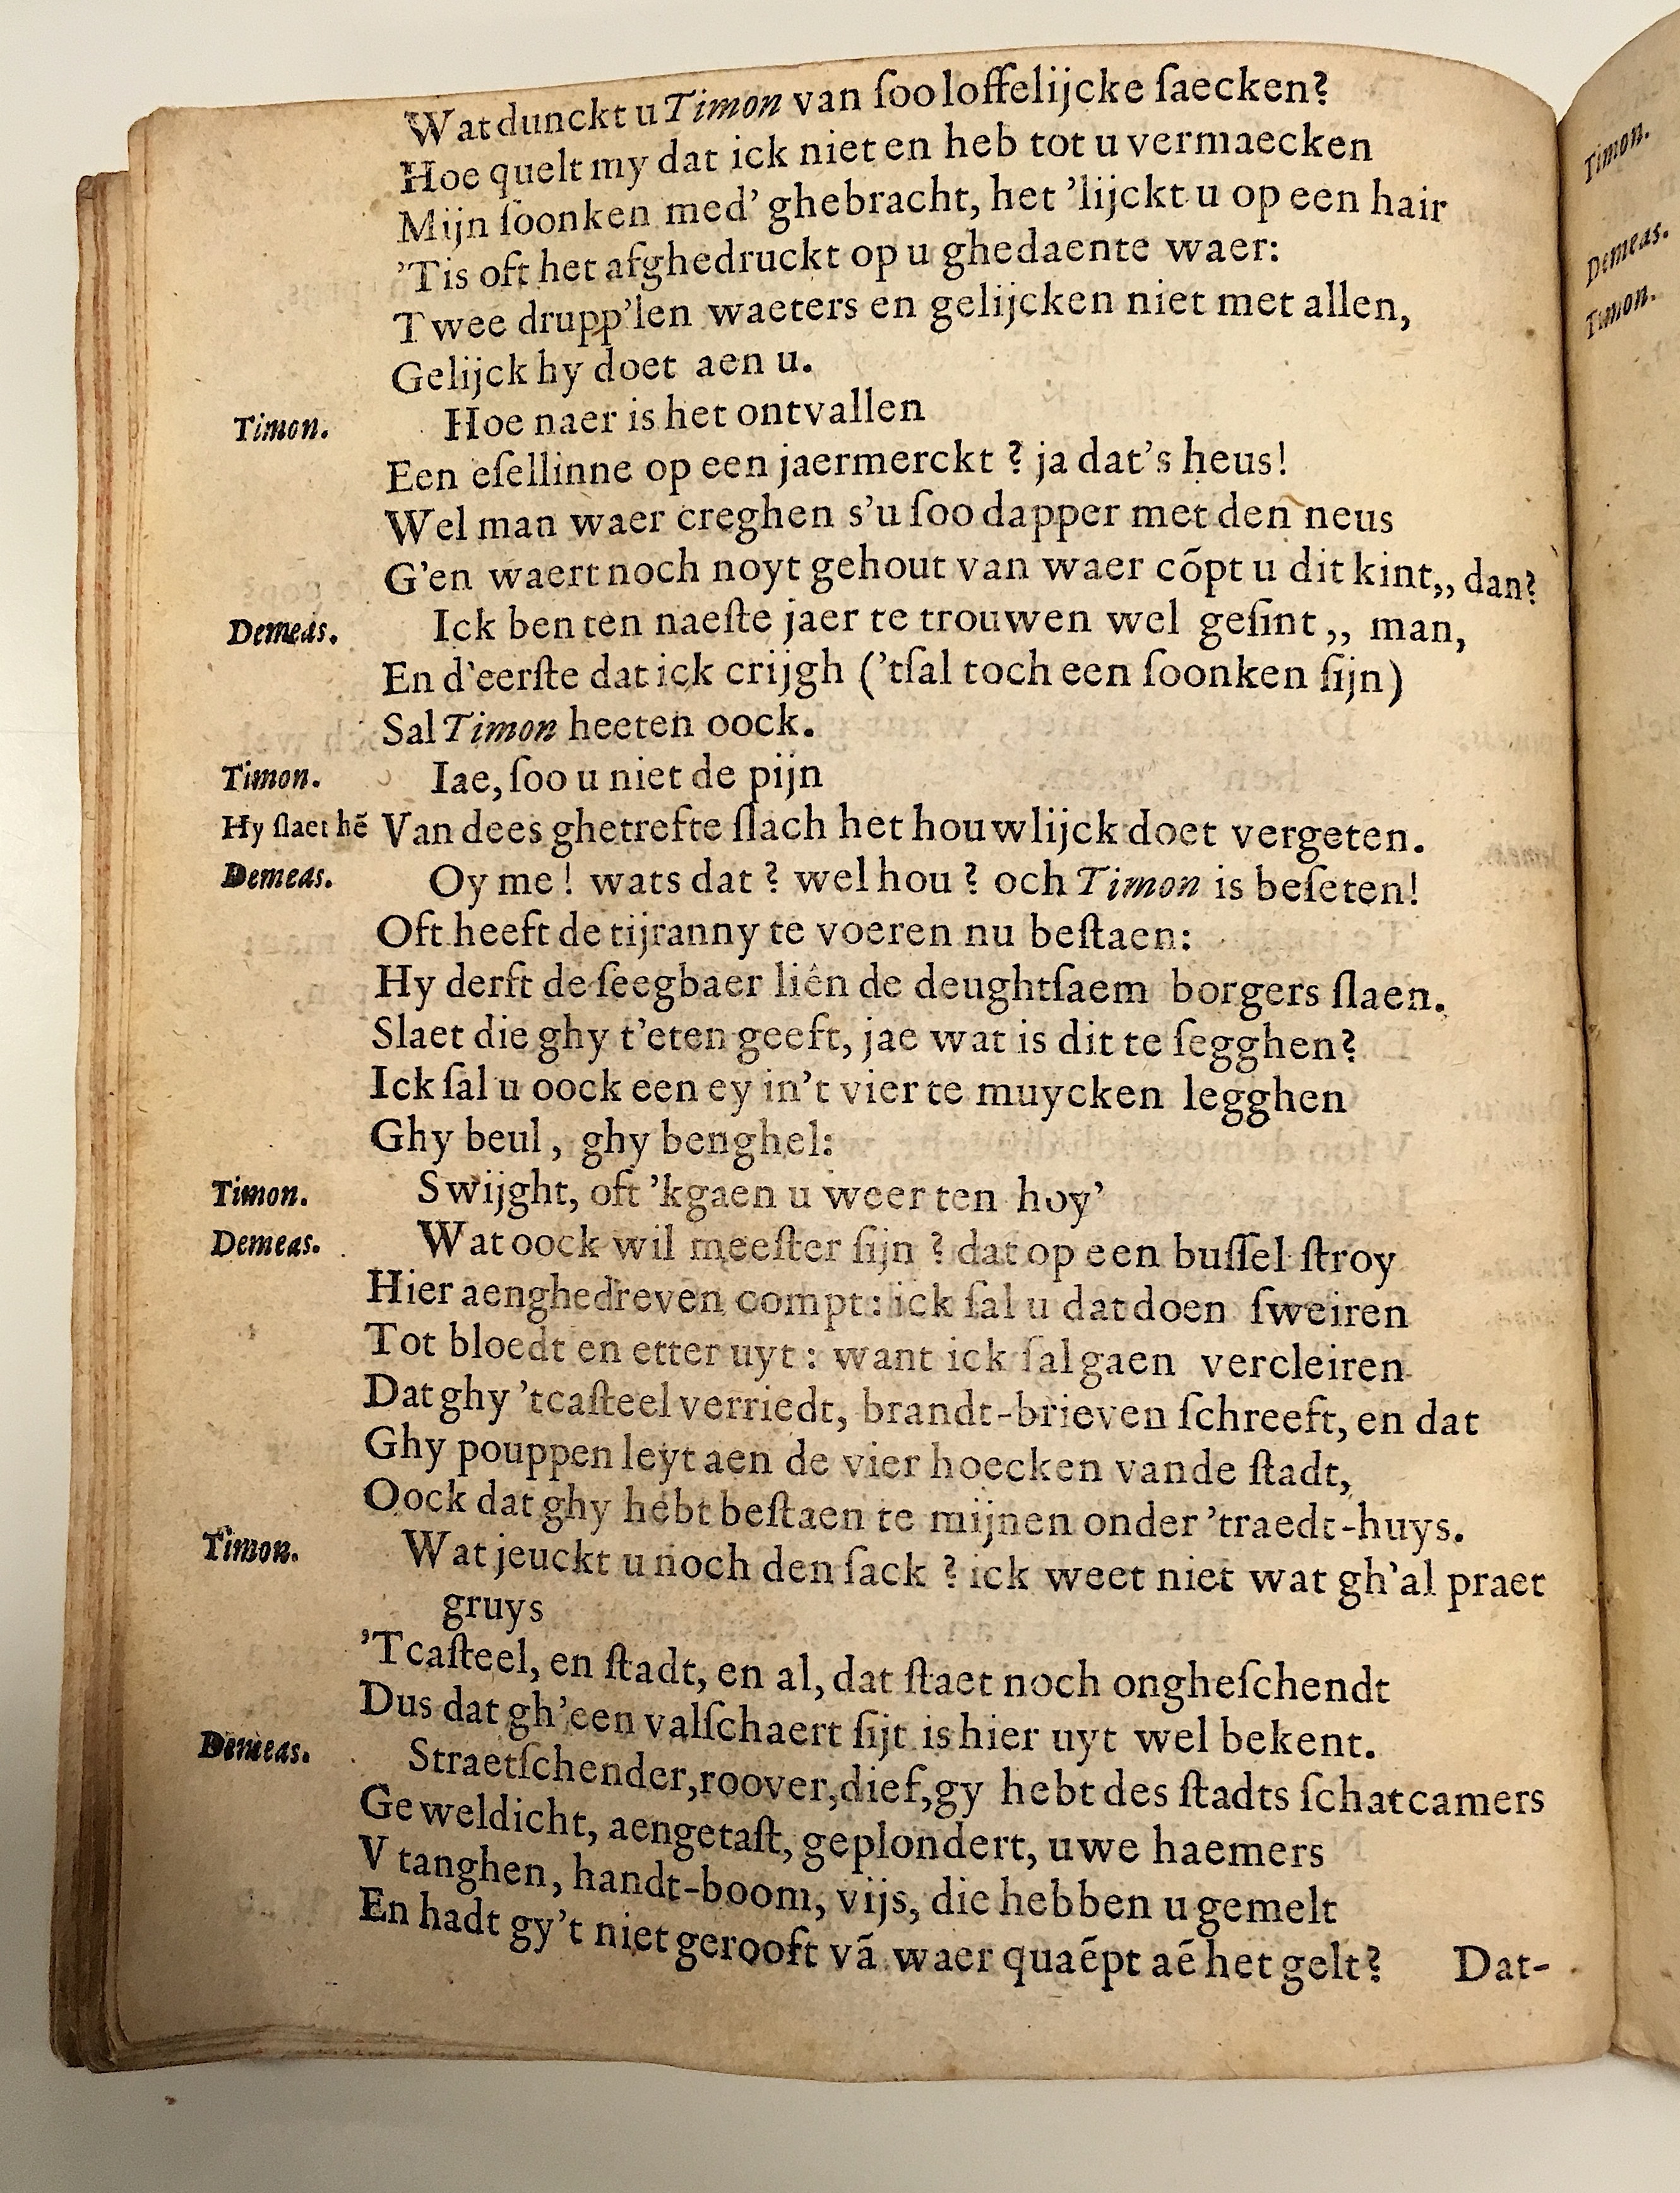 Wat dunckt u Timon van ſoo loffelijcke ſaecken?
Hoe quelt my dat ick niet en heb tot u vermaecken
Mijn ſoonken med' ghebracht, het 'lijckt u op een hair
'Tis oft het afghedruckt op u ghedaente waer:
Twee drupp'len waeters en gelijcken niet met allen,
Gelijck hy doet aen u.
Timon. Hoe naer is het ontvallen
Een eſellinne op een jaermerckt ? ja dat's heus!
Wel man waer creghen s'u ſoo dapper met den neus
G'en waert noch noyt gehout van waer cõpt u dit kint,, dan?
Demeas. Ick ben ten naeſte jaer te trouwen wel geſint ,, man,
En d'eerſte dat ick crijgh ('tſal toch een ſoonken ſijn)
Sal Timon heeten oock.
Timon. Iae, ſoo u niet de pijn
Hy ſlaet hẽ Van dees ghetrefte ſlach het houwlijck doet vergeten.
Demeas. Oy me! wats dat ? wel hou ? och Timon is beſeten!
Oft heeft de tijranny te voeren nu beſtaen:
Hy derft de ſeegbaer liên de deughtſaem borgers ſlaen.
Slaet die ghy t'eten geeft, jae wat is dit te ſegghen?
Ick ſal u oock een ey in't vier te muycken legghen
Ghy beul, ghy benghel:
Timon. Swijght, oft 'kgaen u weer ten hoy'
Demeas. Wat oock wil meeſter ſijn ? dat op een buſſel ſtroy
Hier aenghedreven compt: ick ſal u dat doen ſweiren
Tot bloedt en etter uyt: want ick ſal gaen vercleiren
Dat ghy 'tcaſteel verriedt, brandt-brieven ſchreeft, en dat
Ghy pouppen leyt aen de vier hoecken vande ſtadt,
Oock dat ghy hebt beſtaen te mijnen onder 'traedt-huys.
Timon. Wat jeuckt u noch den ſack ? ick weet niet wat gh'al praet
gruys
'Tcaſteel, en ſtadt, en al, dat ſtaet noch ongheſchendt
Dus dat gh'een valſchaert ſijt is hier uyt wel bekent.
Demeas. Straetſchender, roover, dief, gy hebt des ſtadts ſchatcamers
Geweldicht, aengetaſt, geplondert, uwe haemers
V tanghen, handt-boom, vijs, die hebben u gemelt
En hadt gy't niet gerooft vã waer quaẽpt aẽ het gelt?
Dat-
Timon.
Demeas.
Timon.